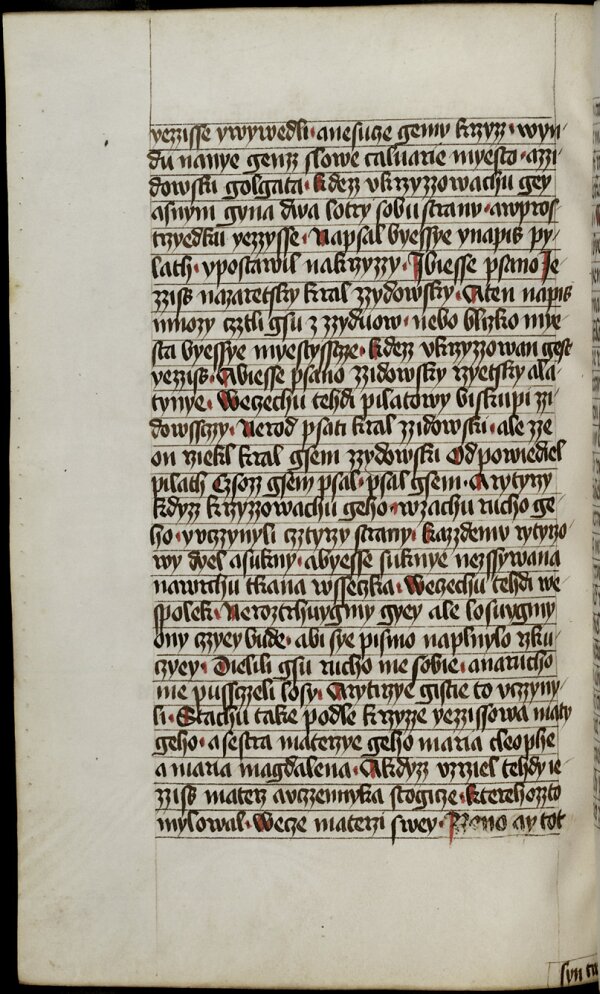 yezzisse ywywedli · anesucze gemu krzyz · wyn
du nanye genz slowe caluarie myesto · azzi
dowski golgata · kdez vkrzyzzowachu gey
asnym gyna dwa lotry sobu strany · awpros
trzyedku yezzysse · Napsal byessye ynapis py
lath · ypostawil nakrzyzzy · Ibiesse psano Je
zziss nazaretsky kral zzydowsky · Aten napis
mnozy cztli gsu z zzyduow · nebo blizko mye
sta byessye myestyssczze · kdez vkrzyzzowan gest
yezziss · Abiesse psano zzidowsky rzyetsky ala
tynye · Weczechu tehdi pilatowy biskupi zzi
dowssczy · Nerod psati kral zzidowski · ale zze
on rziekl kral gsem zzydowski Odpowiediel
pilath Czsoz gsem psal · psal gsem · Arytyrzy
kdyzz krzyzzowachu geho · wzachu rucho ge
ho · yvczynyli cztyrzy strany · kazzdemu rytyrzo
wy dyel asukny · abyesse suknye nezssywana
nawrchu tkana wsseczka · Weczechu tehdi we
spolek · Neroztrhuygmy gyey ale losuygmy
ony czyey bude · abi sye pismo naplnylo rzku
czyey · Dielili gsu rucho me sobie · anarucho
me pussczeli losy · Arytirzye gistie to vczyny
li · Stachu take podle krzyzze yezzissowa maty
geho · a sestra materzye geho maria cleophe
a maria magdalena · Akdyzz vzrziel tehdy ie
zziss materz avczennyka stogicze · kterehozto
mylowal · Wecze materzi swey · Zeno ay tot
syn tw